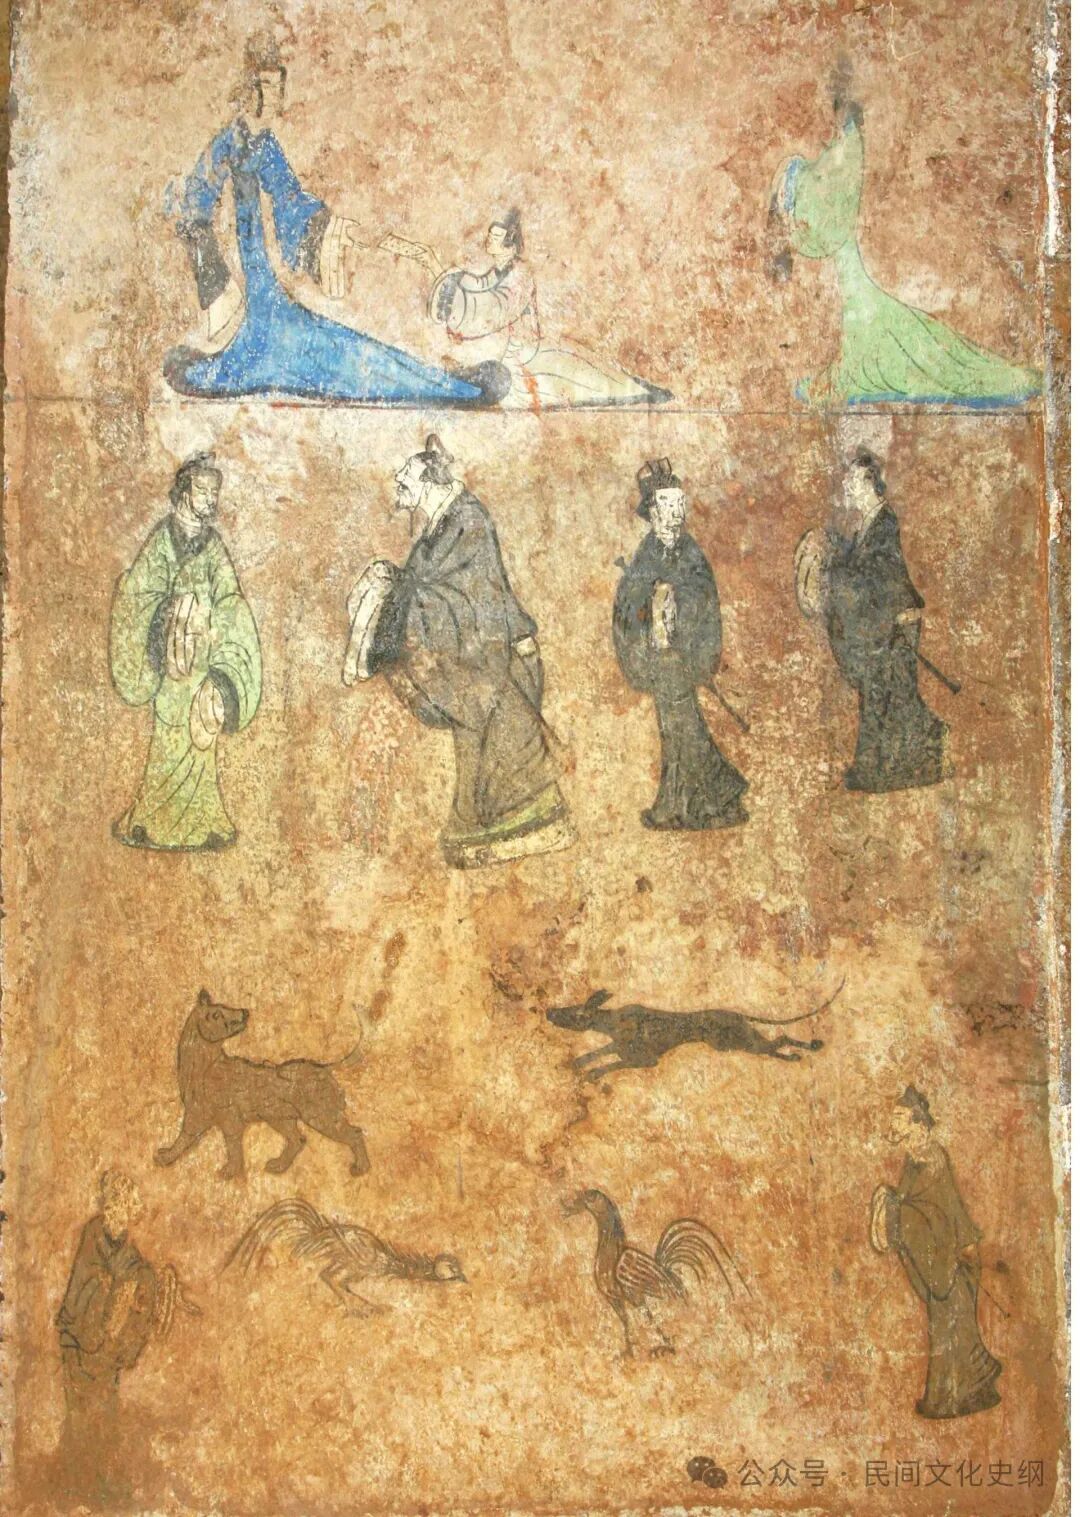 公众号·民间文化史纲